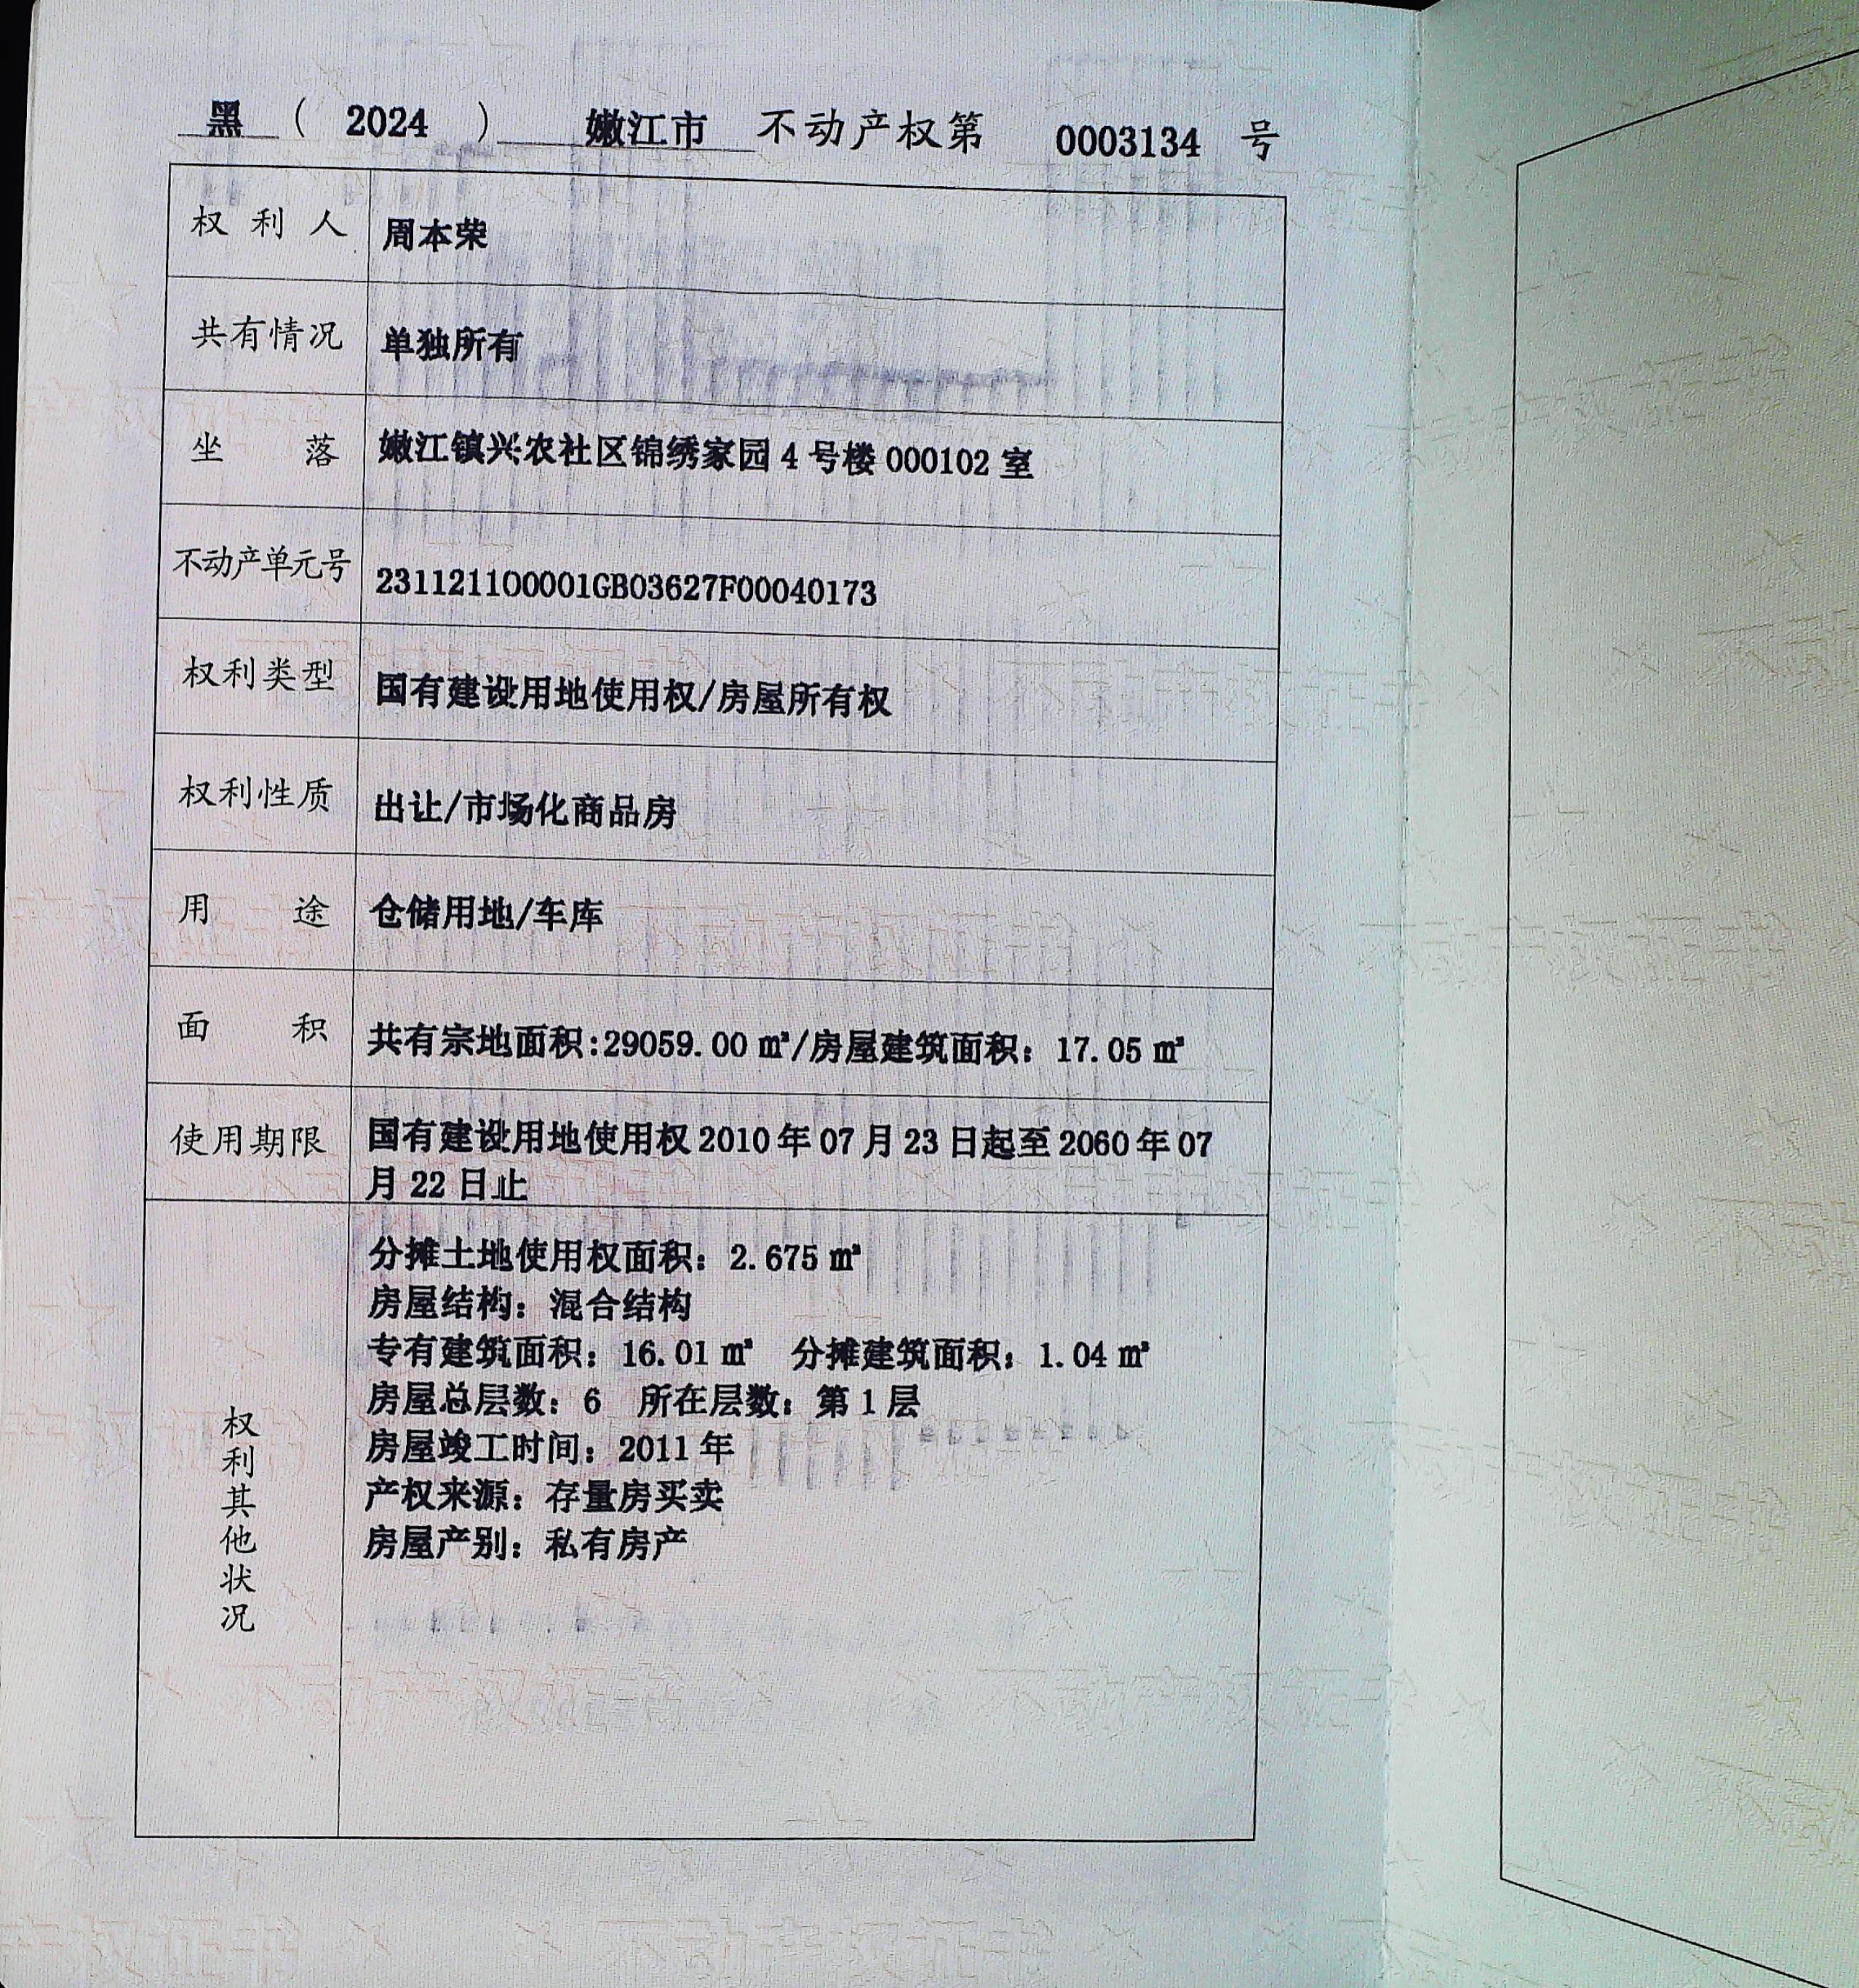 黑（ 2024 ） 嫩江市 不动产权第 0003134 号
权利人 周本荣
共有情况 单独所有
坐落 嫩江镇兴农社区锦绣家园 4 号楼 000102 室
不动产单元号 231121100001GB03627F00040173
权利类型 国有建设用地使用权/房屋所有权
权利性质 出让/市场化商品房
用途 仓储用地/车库
面积 共有宗地面积:29059.00 ㎡/房屋建筑面积：17.05 ㎡
使用期限 国有建设用地使用权 2010 年 07 月 23 日起至 2060 年 07
月 22 日止
权利其他状况
分摊土地使用权面积：2.675 ㎡
房屋结构：混合结构
专有建筑面积：16.01 ㎡ 分摊建筑面积：1.04 ㎡
房屋总层数：6 所在层数：第 1 层
房屋竣工时间：2011 年
产权来源：存量房买卖
房屋产别：私有房产